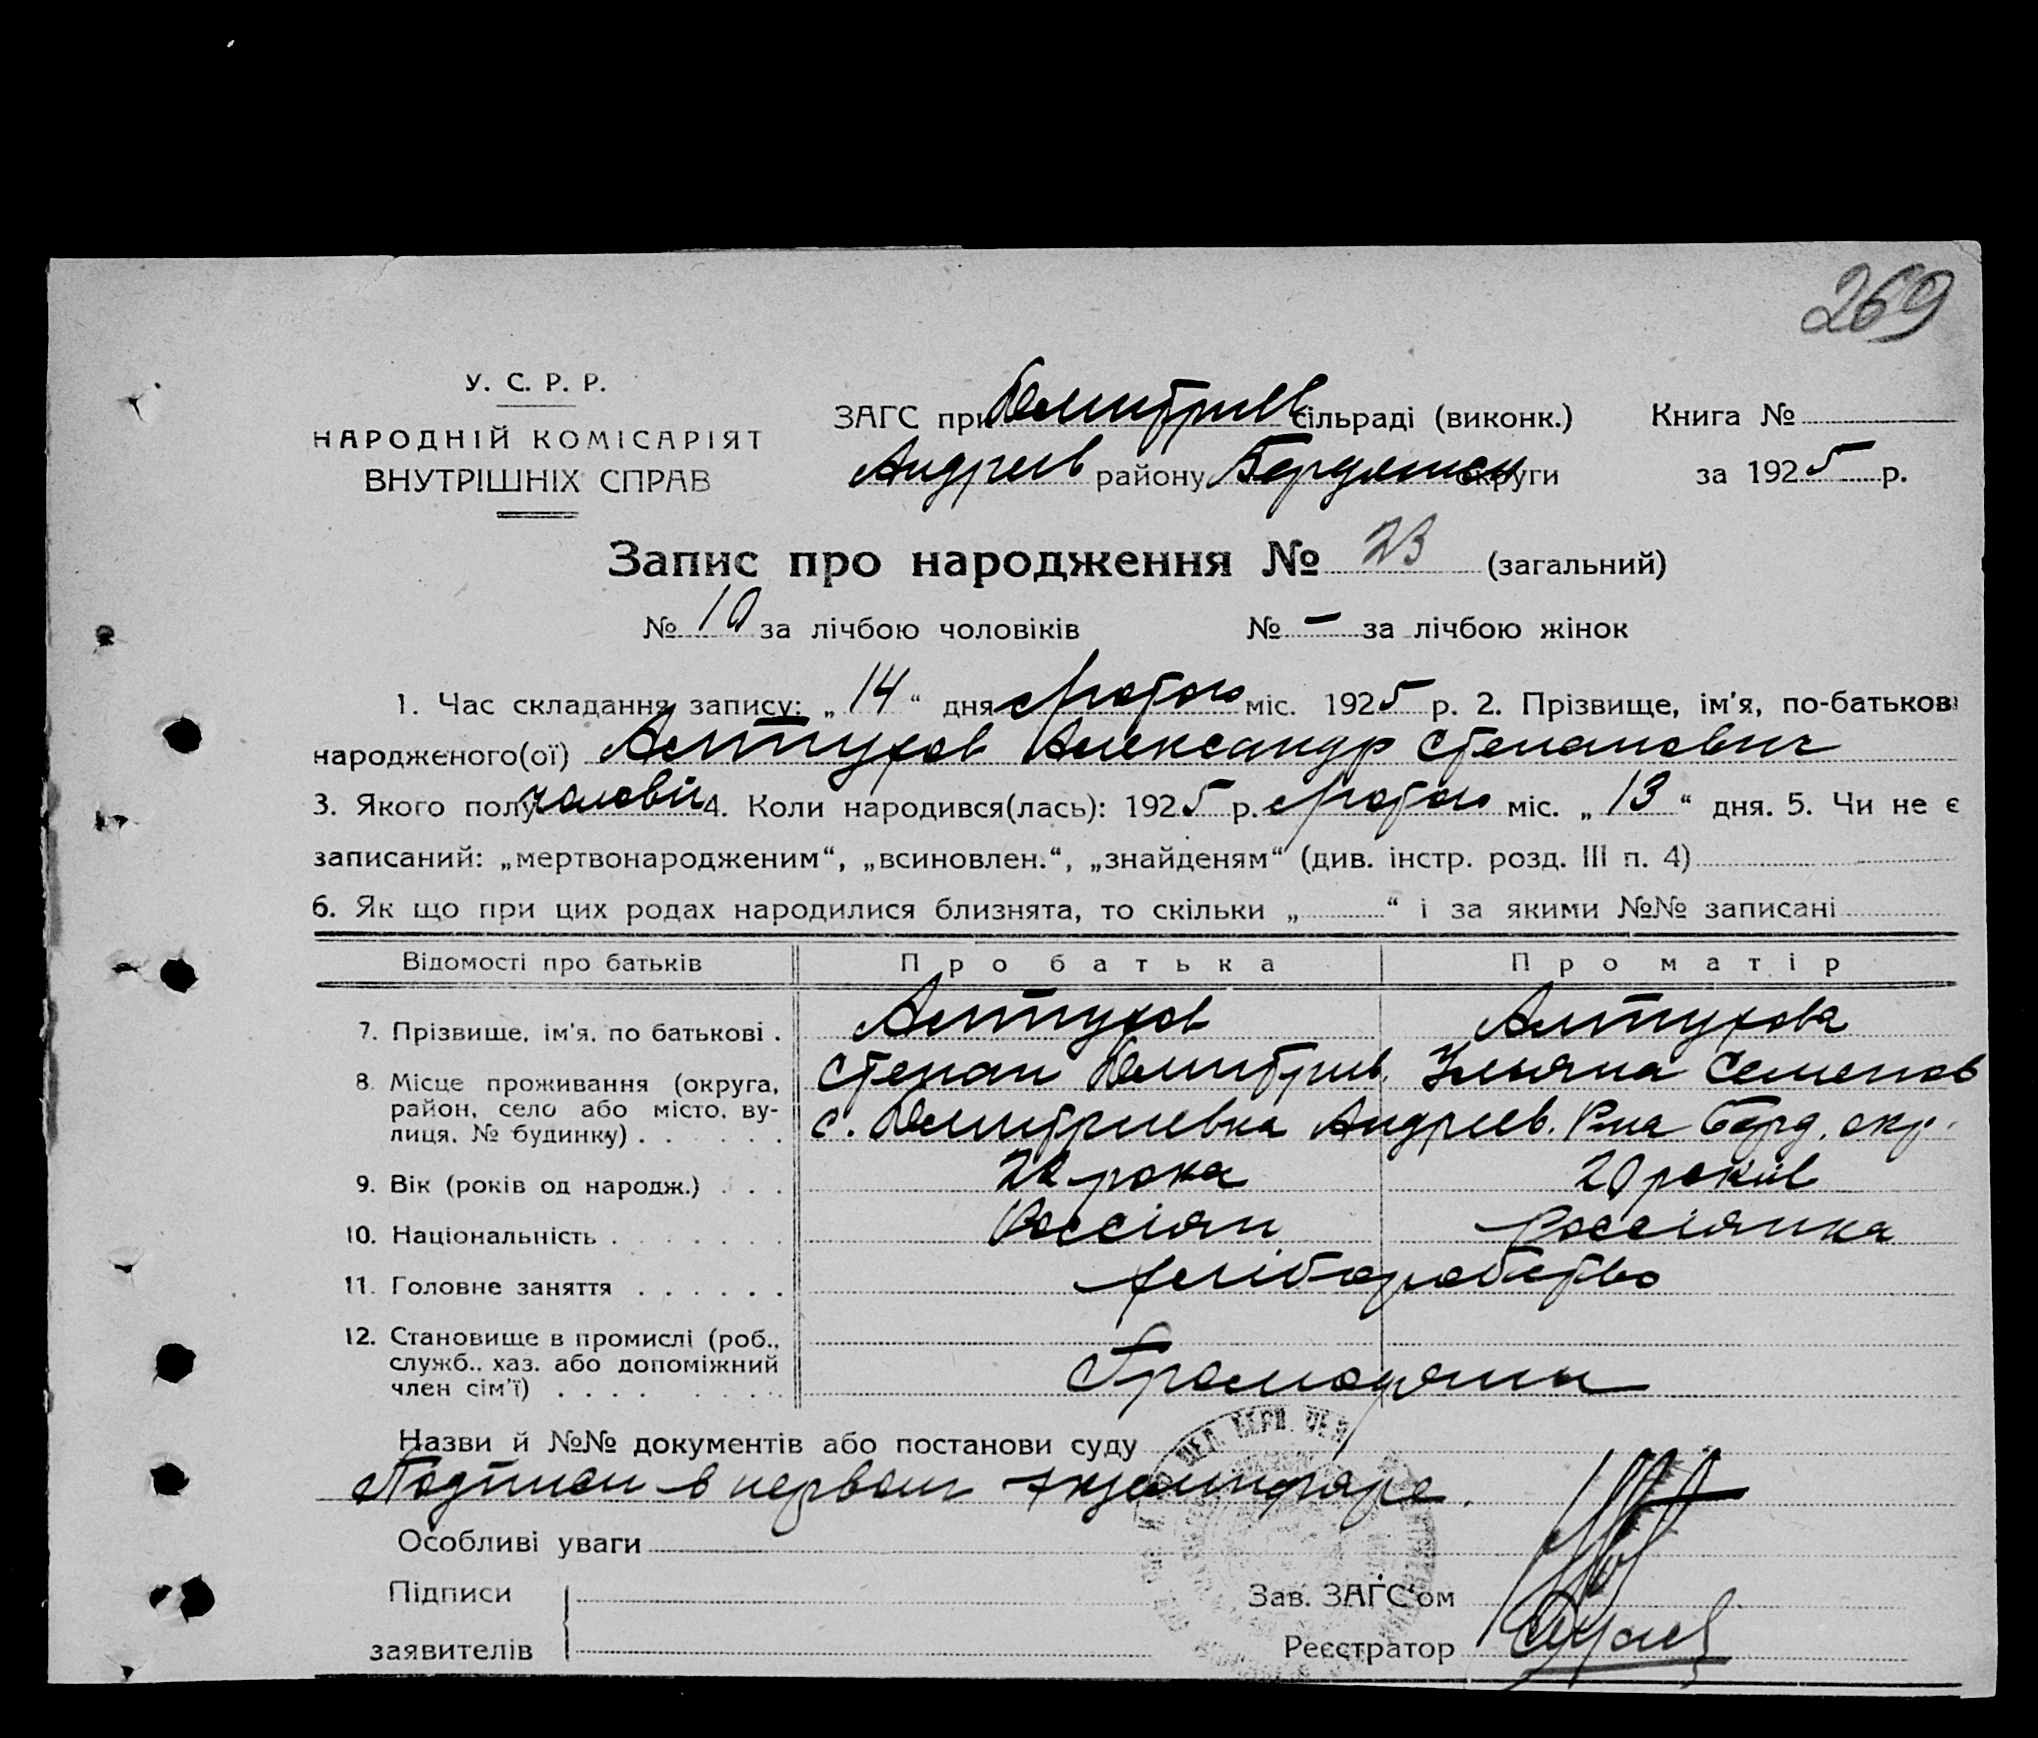 269
У. С. Р. Р.
НАРОДНІЙ КОМІСАРІЯТ
ВНУТРІШНІХ СПРАВ
ЗАГС при Дмитрієв сільраді (виконк.) Книга №
Андреев району Бердянськ округи за 1925 р.
Запис про народження № 23 (загальний)
№ 10 за лічбою чоловіків № — за лічбою жінок
1. Час складання запису: „14“ дня лютого міс. 1925 р. 2. Прізвище, ім'я, по-батькові
народженого(ої) Алтухов Александр Степанович
3. Якого полу чоловіч 4. Коли народився(лась): 1925 р. лютого міс. „13“ дня. 5. Чи не є
записаний: „мертвонародженим“, „всиновлен.“, „знайденям“ (див. інстр. розд. III п. 4)
6. Як що при цих родах народилися близнята, то скільки „ “ і за якими №№ записані
Відомості про батьків Про батька Про матір
7. Прізвище, ім'я, по батькові . Алтухов Алтухова
Степан Дмитриев. Ульяна Семенов
8. Місце проживання (округа, район, село або місто, вулиця, № будинку) . с. Дмитриевка Андреев. Р-на Берд. окр.
9. Вік (років од народж.) . . . 22 рока 20 років
10. Національність . Россіян Россіянка
11. Головне заняття . . . . . . хліборобство
12. Становище в промислі (роб., служб., хаз. або допоміжний член сім'ї) . . . .
Назви й №№ документів або постанови суду
Подписи в первом экземпляре.
Особливі уваги
Підписи
заявителів
Зав. ЗАГС'ом
Реєстратор